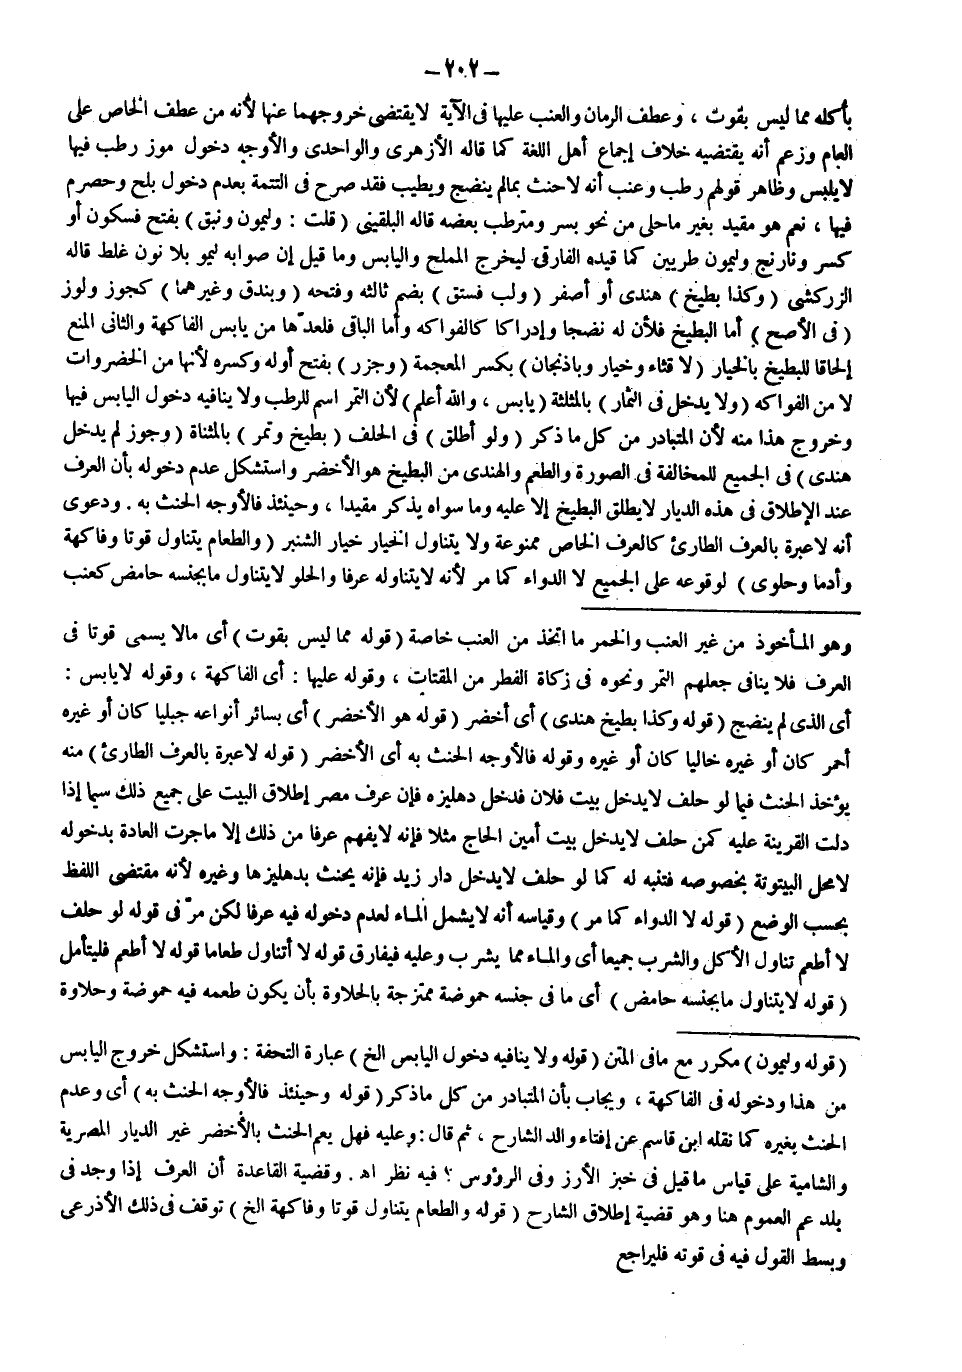 — ٢٠٢ —
بأكله مما ليس بقوت ، وعطف الرمان والعنب عليها فى الآية لايقتضى خروجهما عنها لأنه من عطف الخاص على
العام وزعم أنه يقتضيه خلاف إجماع أهل اللغة كما قاله الأزهرى والواحدى والأوجه دخول موز رطب فيها
لايابس وظاهر قولهم رطب وعنب أنه لاحنث بمالم ينضج ويطيب فقد صرح فى التتمة بعدم دخول بلح وحصرم
فيها ، نعم هو مقيد بغير ماحلى من نحو بسر ومترطب بعضه قاله البلقينى ( قلت : وليمون ونبق ) بفتح فسكون أو
كسر ونارنج وليمون طريين كما قيده الفارقى ليخرج المملح واليابس وما قيل إن صوابه ليمو بلا نون غلط قاله
الزركشى ( وكذا بطيخ ) هندى أو أصفر ( ولب فستق ) بضم ثالثه وفتحه ( وبندق وغيرهما ) كجوز ولوز
( فى الأصح ) أما البطيخ فلأن له نضجا وإدراكا كالفواكه وأما الباقى فلعدّها من يابس الفاكهة والثانى المنع
إلحاقا للبطيخ بالخيار ( لا قثاء وخيار وباذنجان ) بكسر المعجمة ( وجزر ) بفتح أوله وكسره لأنها من الخضروات
لا من الفواكه ( ولا يدخل فى الثمار ) بالمثلثة ( يابس ، والله أعلم ) لأن الثمر اسم للرطب ولا ينافيه دخول اليابس فيها
وخروج هذا منه لأن المتبادر من كل ما ذكر ( ولو أطلق ) فى الحلف ( بطيخ وتمر ) بالمثناة ( وجوز لم يدخل
هندى ) فى الجميع للمخالفة فى الصورة والطعم والهندى من البطيخ هو الأخضر واستشكل عدم دخوله بأن العرف
عند الإطلاق فى هذه الديار لايطلق البطيخ إلا عليه وما سواه يذكر مقيدا ، وحينئذ فالأوجه الحنث به . ودعوى
أنه لاعبرة بالعرف الطارئ كالعرف الخاص ممنوعة ولا يتناول الخيار خيار الشنبر ( والطعام يتناول قوتا وفاكهة
وأدما وحلوى ) لوقوعه على الجميع لا الدواء كما مر لأنه لايتناوله عرفا والحلو لايتناول مابجنسه حامض كعنب
وهو المأخوذ من غير العنب والخمر ما اتخذ من العنب خاصة ( قوله مما ليس بقوت ) أى مالا يسمى قوتا فى
العرف فلا ينافى جعلهم التمر ونحوه فى زكاة الفطر من المقتات ، وقوله عليها : أى الفاكهة ، وقوله لايابس :
أى الذى لم ينضج ( قوله وكذا بطيخ هندى ) أى أخضر ( قوله هو الأخضر ) أى بسائر أنواعه جبليا كان أو غيره
أحمر كان أو غيره خاليا كان أو غيره وقوله فالأوجه الحنث به أى الأخضر ( قوله لاعبرة بالعرف الطارئ ) منه
يؤخذ الحنث فيما لو حلف لايدخل بيت فلان فدخل دهليزه فإن عرف مصر إطلاق البيت على جميع ذلك سيما إذا
دلت القرينة عليه كمن حلف لايدخل بيت أمين الحاج مثلا فإنه لايفهم عرفا من ذلك إلا ماجرت العادة بدخوله
لامحل البيتوتة بخصوصه فتنبه له كما لو حلف لايدخل دار زيد فإنه يحنث بدهليزها وغيره لأنه مقتضى اللفظ
بحسب الوضع ( قوله لا الدواء كما مر ) وقياسه أنه لايشمل الماء لعدم دخوله فيه عرفا لكن مرّ فى قوله لو حلف
لا أطعم تناول الأكل والشرب جميعا أى والماء مما يشرب وعليه فيفارق قوله لا أتناول طعاما قوله لا أطعم فليتأمل
( قوله لايتناول مابجنسه حامض ) أى ما فى جنسه حموضة ممتزجة بالحلاوة بأن يكون طعمه فيه حموضة وحلاوة
( قوله وليمون ) مكرر مع مافى المتن ( قوله ولا ينافيه دخول اليابس الخ ) عبارة التحفة : واستشكل خروج اليابس
من هذا ودخوله فى الفاكهة ، ويجاب بأن المتبادر من كل ماذكر ( قوله وحينئذ فالأوجه الحنث به ) أى وعدم
الحنث بغيره كما نقله ابن قاسم عن إفتاء والد الشارح ، ثم قال : وعليه فهل يعم الحنث بالأخضر غير الديار المصرية
والشامية على قياس ماقيل فى خبز الأرز وفى الرؤوس ؟ فيه نظر اه . وقضية القاعدة أن العرف إذا وجد فى
بلد عم العموم هنا وهو قضية إطلاق الشارح ( قوله والطعام يتناول قوتا وفاكهة الخ ) توقف فى ذلك الأذرعى
وبسط القول فيه فى قوته فليراجع